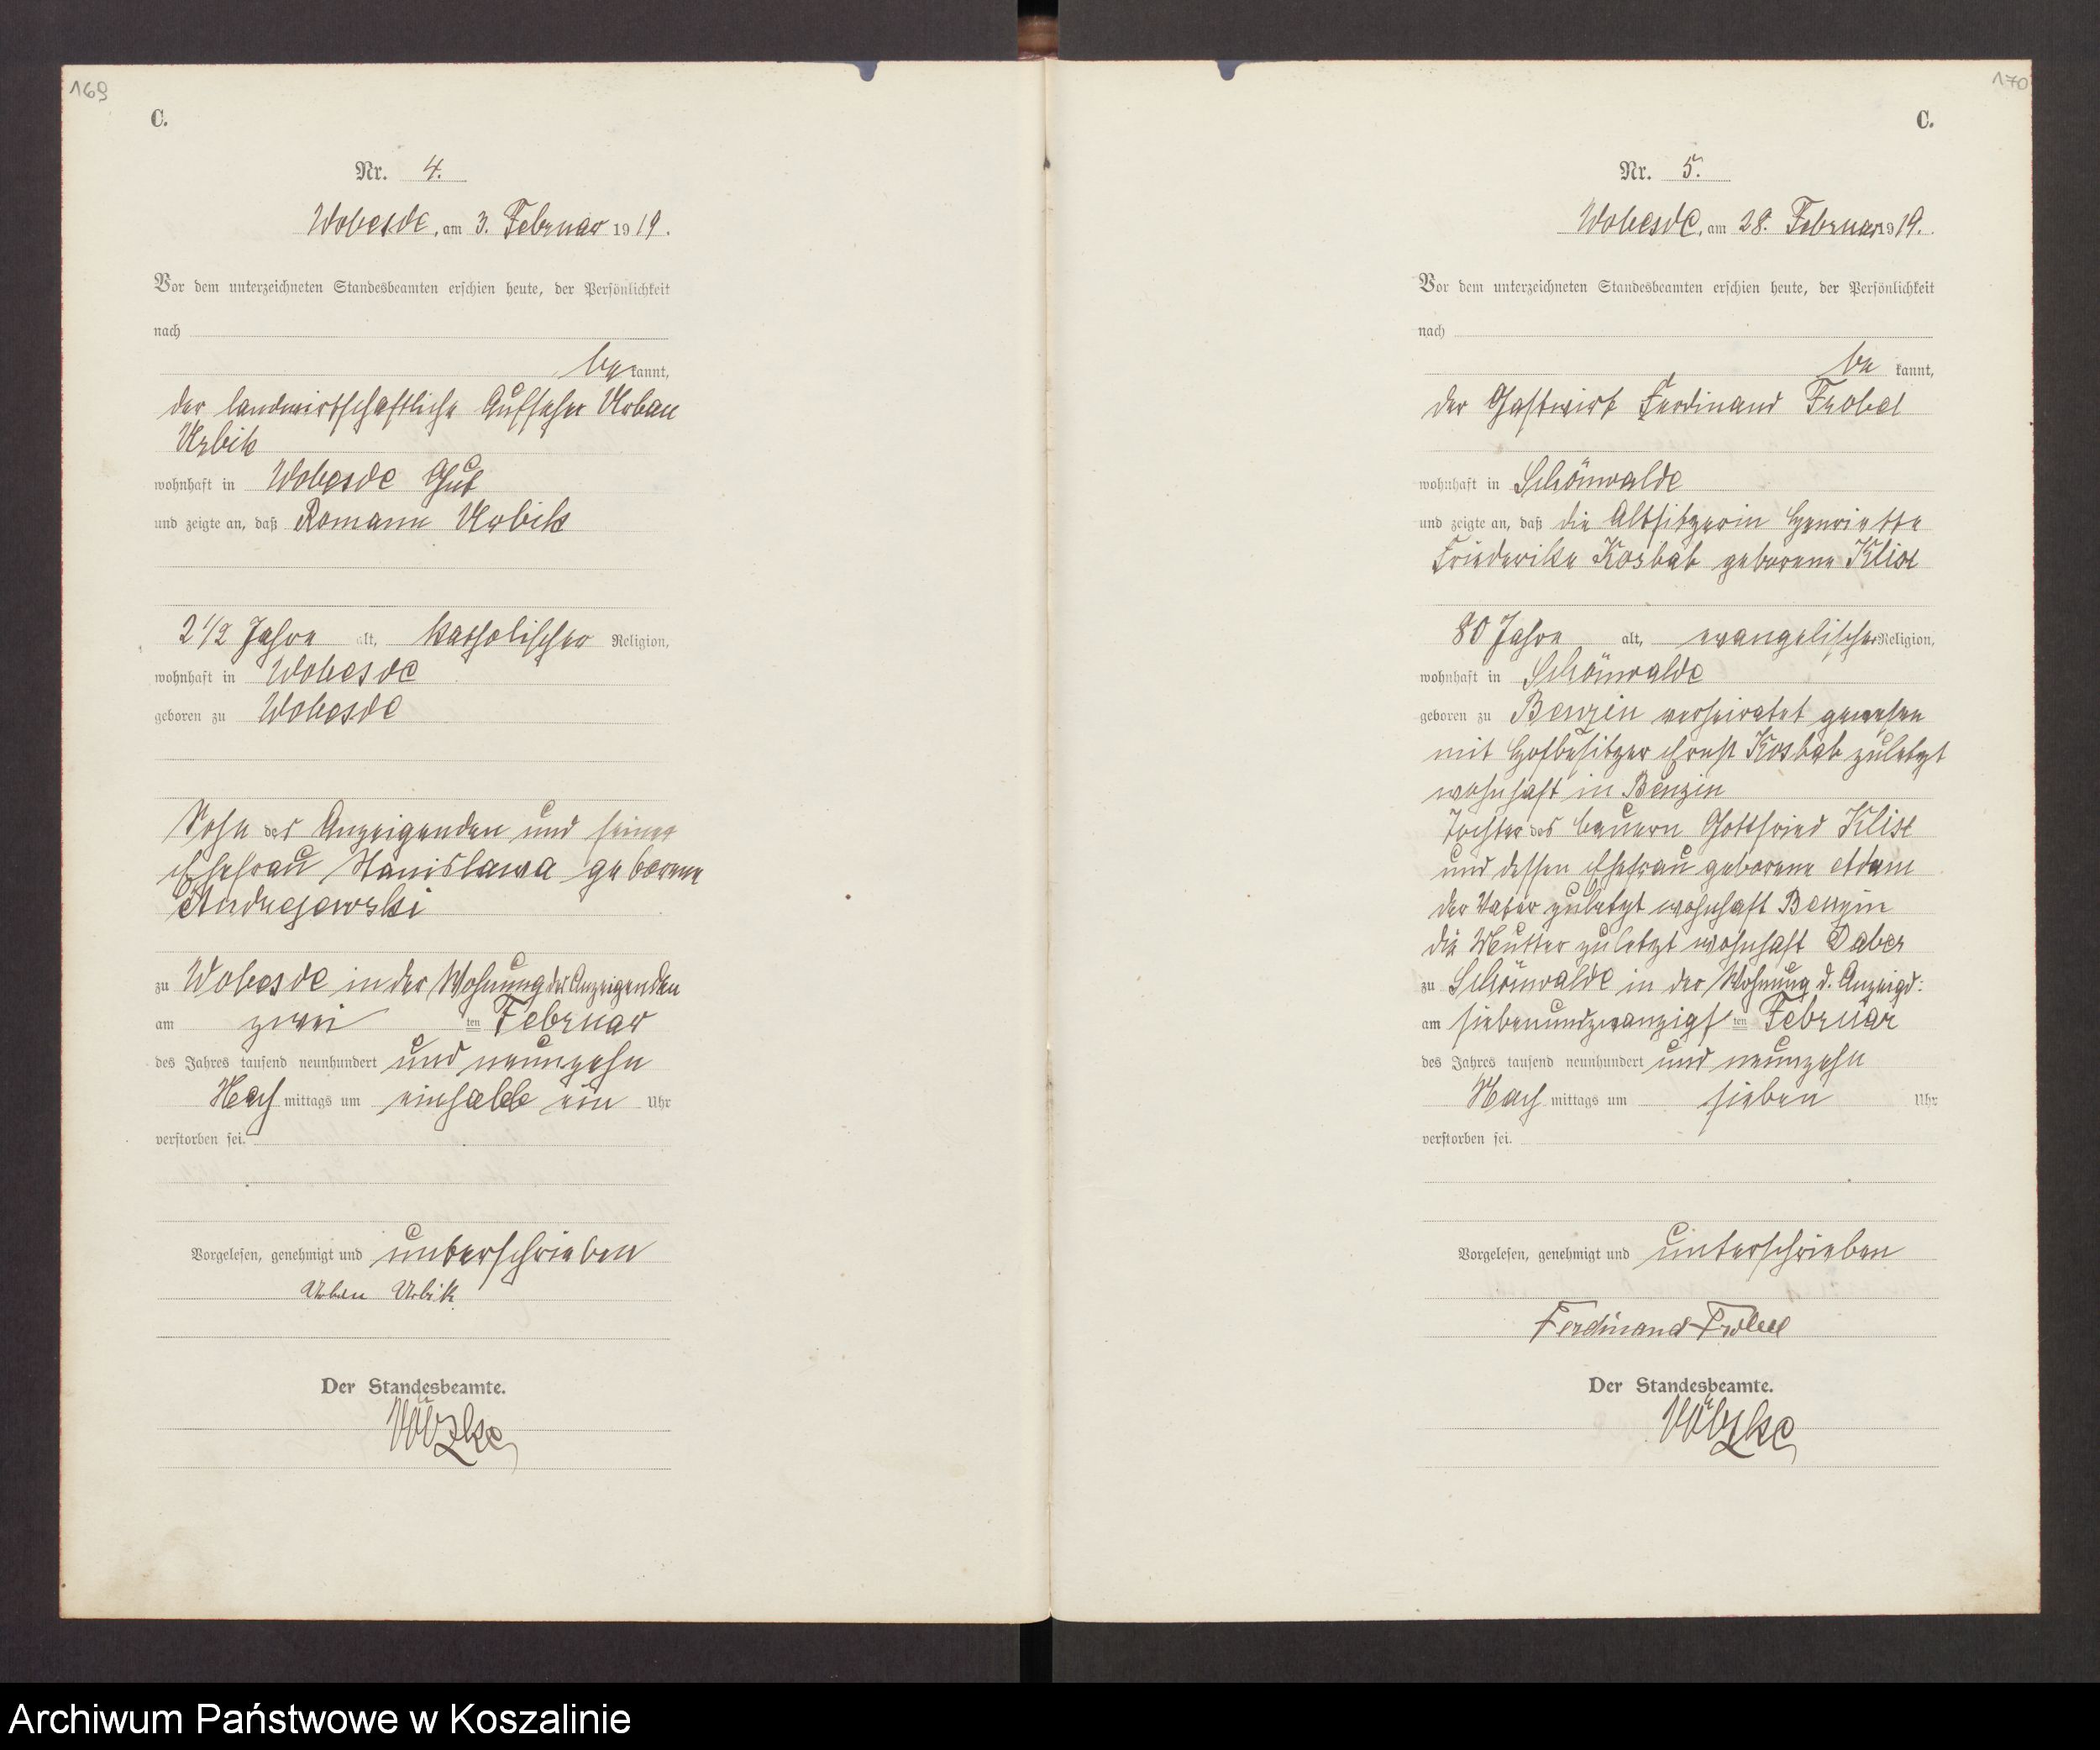 169
C.
Nr. 4.
Wobesde, am 3. Februar 1919.
Vor dem unterzeichneten Standesbeamten erschien heute, der Persönlichkeit
nach
be kannt,
der landwirtschaftliche Aufseher Urban
Urbik
wohnhaft in Wobesde Gut
und zeigte an, daß Romann Urbik
2 1/2 Jahre alt, katholischer Religion,
wohnhaft in Wobesde
geboren zu Wobesde
Sohn des Anzeigenden und seiner
Ehefrau Stanislawa geborene
Andrejewski
zu Wobesde in der Wohnung des Anzeigenden
am zwei ten Februar
des Jahres tausend neunhundert und neunzehn
Nach mittags um einhalb ein Uhr
verstorben sei.
Vorgelesen, genehmigt und unterschrieben
Urban Urbik
Der Standesbeamte.
170
C.
Nr. 5.
Wobesde, am 28. Februar 1919.
Vor dem unterzeichneten Standesbeamten erschien heute, der Persönlichkeit
nach
be kannt,
der Gastwirt Ferdinand Frobel
wohnhaft in Schönwalde
und zeigte an, daß die Altsitzerin Henriette
Friederike Kosbab geborene Klix
80 Jahre alt, evangelischer Religion,
wohnhaft in Schönwalde
geboren zu Benzin verheiratet gewesen
mit Hofbesitzer Ernst Kosbab zuletzt
wohnhaft in Benzin
Tochter des Bauern Gottfried Klix
und dessen Ehefrau geborene Adam
der Vater zuletzt wohnhaft Benzin
die Mutter zuletzt wohnhaft Daber
zu Schönwalde in der Wohnung d. Anzeigd:
am siebenundzwanzigs ten Februar
des Jahres tausend neunhundert und neunzehn
Nach mittags um sieben Uhr
verstorben sei.
Vorgelesen, genehmigt und unterschrieben
Ferdinand Frobel
Der Standesbeamte.
Archiwum Państwowe w Koszalinie